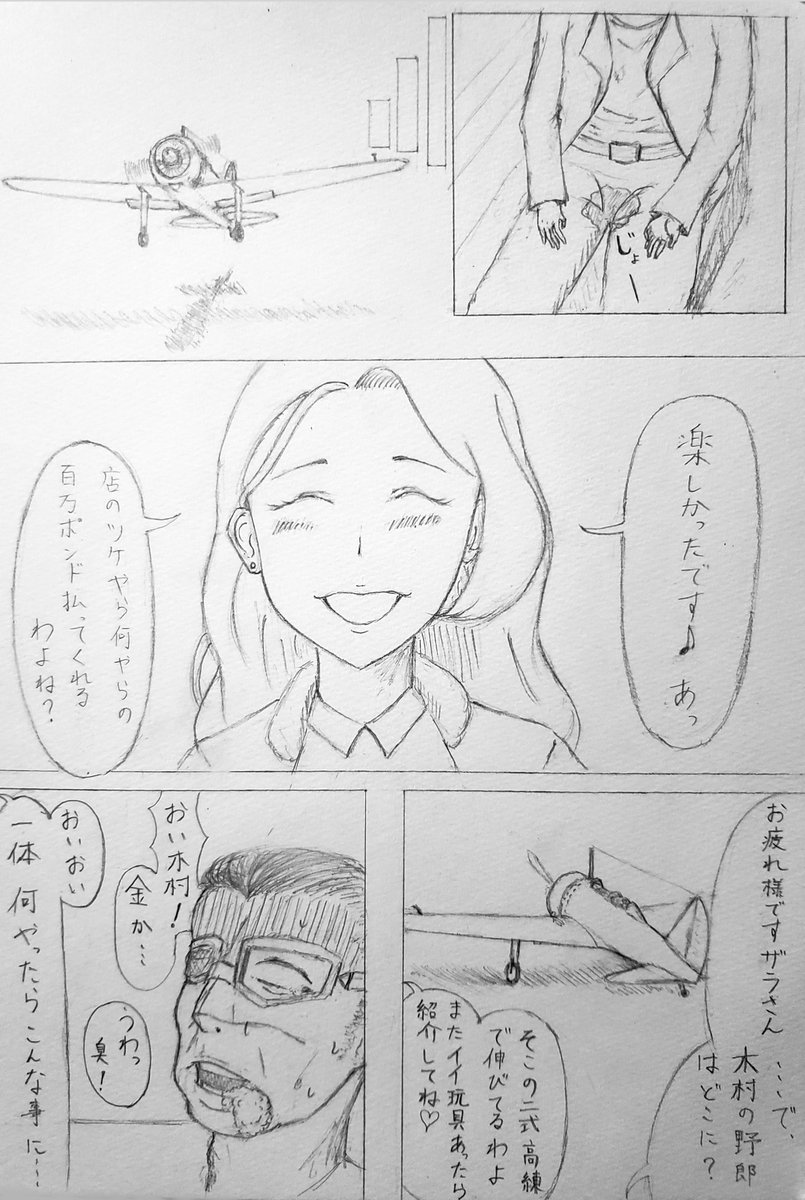 じょー
楽しかったです♪ あっ
店のツケやら何やらの
百万ポンド払ってくれる
わよね?
お疲れ様ですザラさん
…で、
木村の野郎
はどこに?
そこの二式高練
で伸びてるわよ
またイイ玩具あったら
紹介してね♡
おい木村!
金か…
うわっ
臭!
おいおい
一体 何やったらこんな事に…